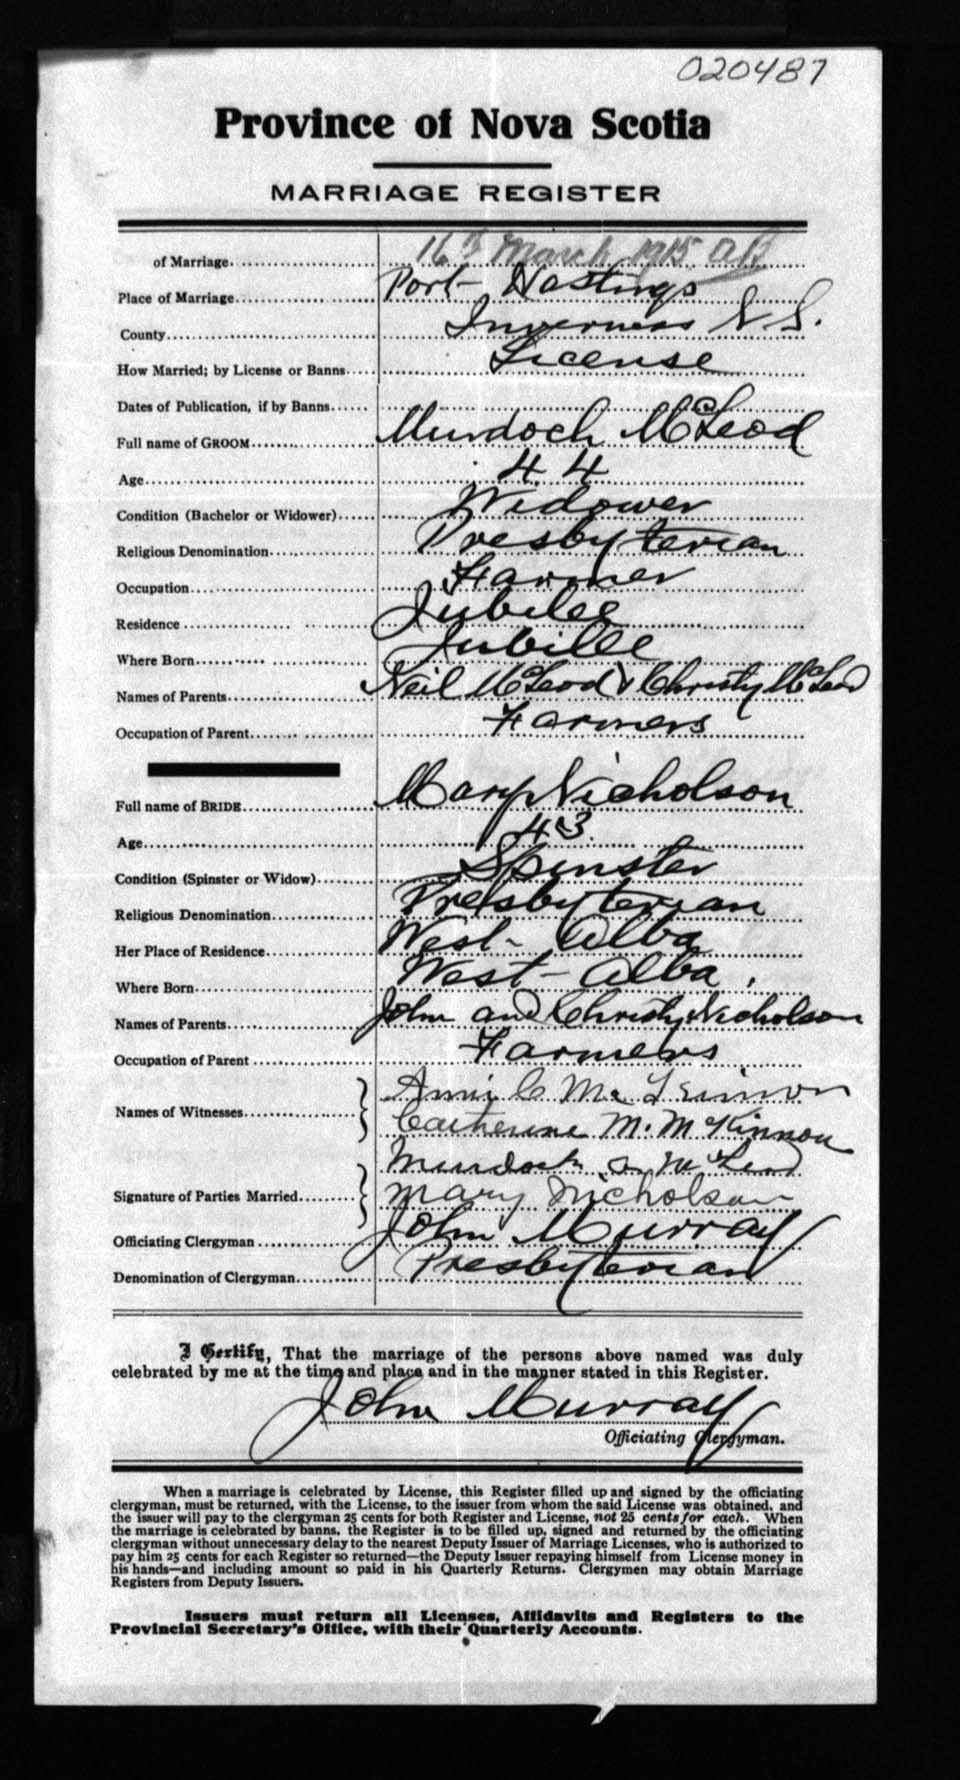 020487
Province of Nova Scotia
MARRIAGE REGISTER
of Marriage 16th March 1915
Place of Marriage Port Hastings
County Inverness N. S.
How Married; by License or Banns License
Dates of Publication, if by Banns
Full name of GROOM Murdoch McLeod
Age 44
Condition (Bachelor or Widower) Widower
Religious Denomination Presbyterian
Occupation Farmer
Residence Jubilee
Where Born Jubilee
Names of Parents Neil McLeod & Christy McLeod
Occupation of Parent Farmers
Full name of BRIDE Mary Nicholson
Age 43
Condition (Spinster or Widow) Spinster
Religious Denomination Presbyterian
Her Place of Residence West Alba
Where Born West Alba
Names of Parents John and Christy Nicholson
Occupation of Parent Farmers
Names of Witnesses Annie C
Catherine M. McKinnon
Murdock McLeod
Signature of Parties Married Mary Nicholson
Officiating Clergyman John Murray
Denomination of Clergyman Presbyterian
I Certify, That the marriage of the persons above named was duly
celebrated by me at the time and place and in the manner stated in this Register.
John Murray
Officiating Clergyman.
When a marriage is celebrated by License, this Register filled up and signed by the officiating
clergyman, must be returned, with the License, to the issuer from whom the said License was obtained, and
the issuer will pay to the clergyman 25 cents for both Register and License, not 25 cents for each. When
the marriage is celebrated by banns, the Register is to be filled up, signed and returned by the officiating
clergyman without unnecessary delay to the nearest Deputy Issuer of Marriage Licenses, who is authorized to
pay him 25 cents for each Register so returned—the Deputy Issuer repaying himself from License money in
his hands—and including amount so paid in his Quarterly Returns. Clergymen may obtain Marriage
Registers from Deputy Issuers.
Issuers must return all Licenses, Affidavits and Registers to the
Provincial Secretary's Office, with their Quarterly Accounts.